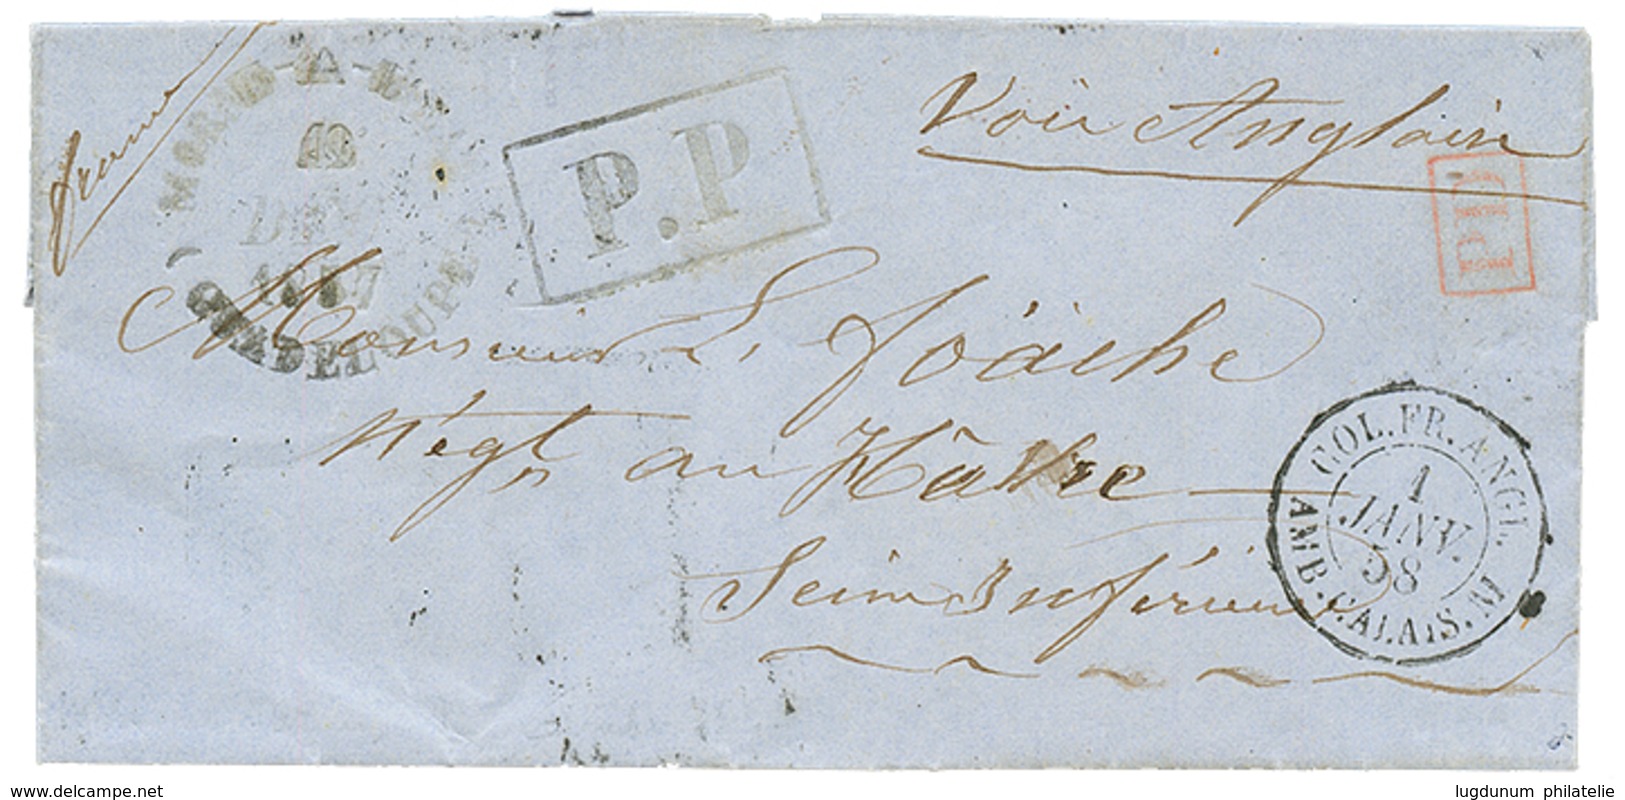 MORNE-A-L'EAU
12
DEC
1857
GUADELOUPE
P.P
Voie Anglaise
P.D.
Monsieur L. Joäche
Négt au Havre
Seine Inférieure
COL. FR. ANGL.
1
JANV.
58
AMB. CALAIS. M
www.delcampe.net
lugdunum philatelie